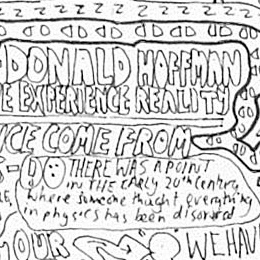 Z Z Z Z Z Z Z Z Z
DONALD HOFFMAN
E EXPERIENCE REALITY
NCE COME FROM
DO THERE WAS A POINT
IN THE EARLY 20th Century
where someone thought everything
in physics has been disorved
MOUR WE HAV